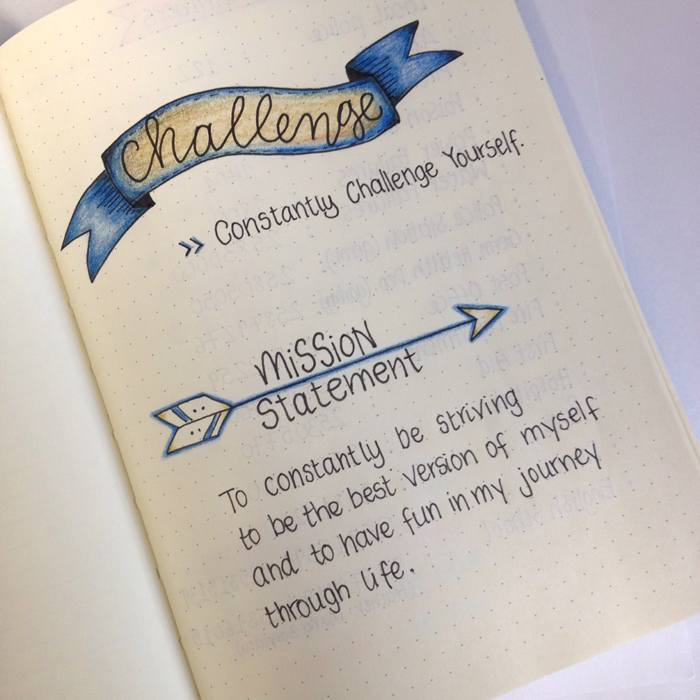 Challenge
» Constantly Challenge Yourself.
MiSSiON
Statement
To constantly be striving
to be the best version of myself
and to have fun in my journey
through life.